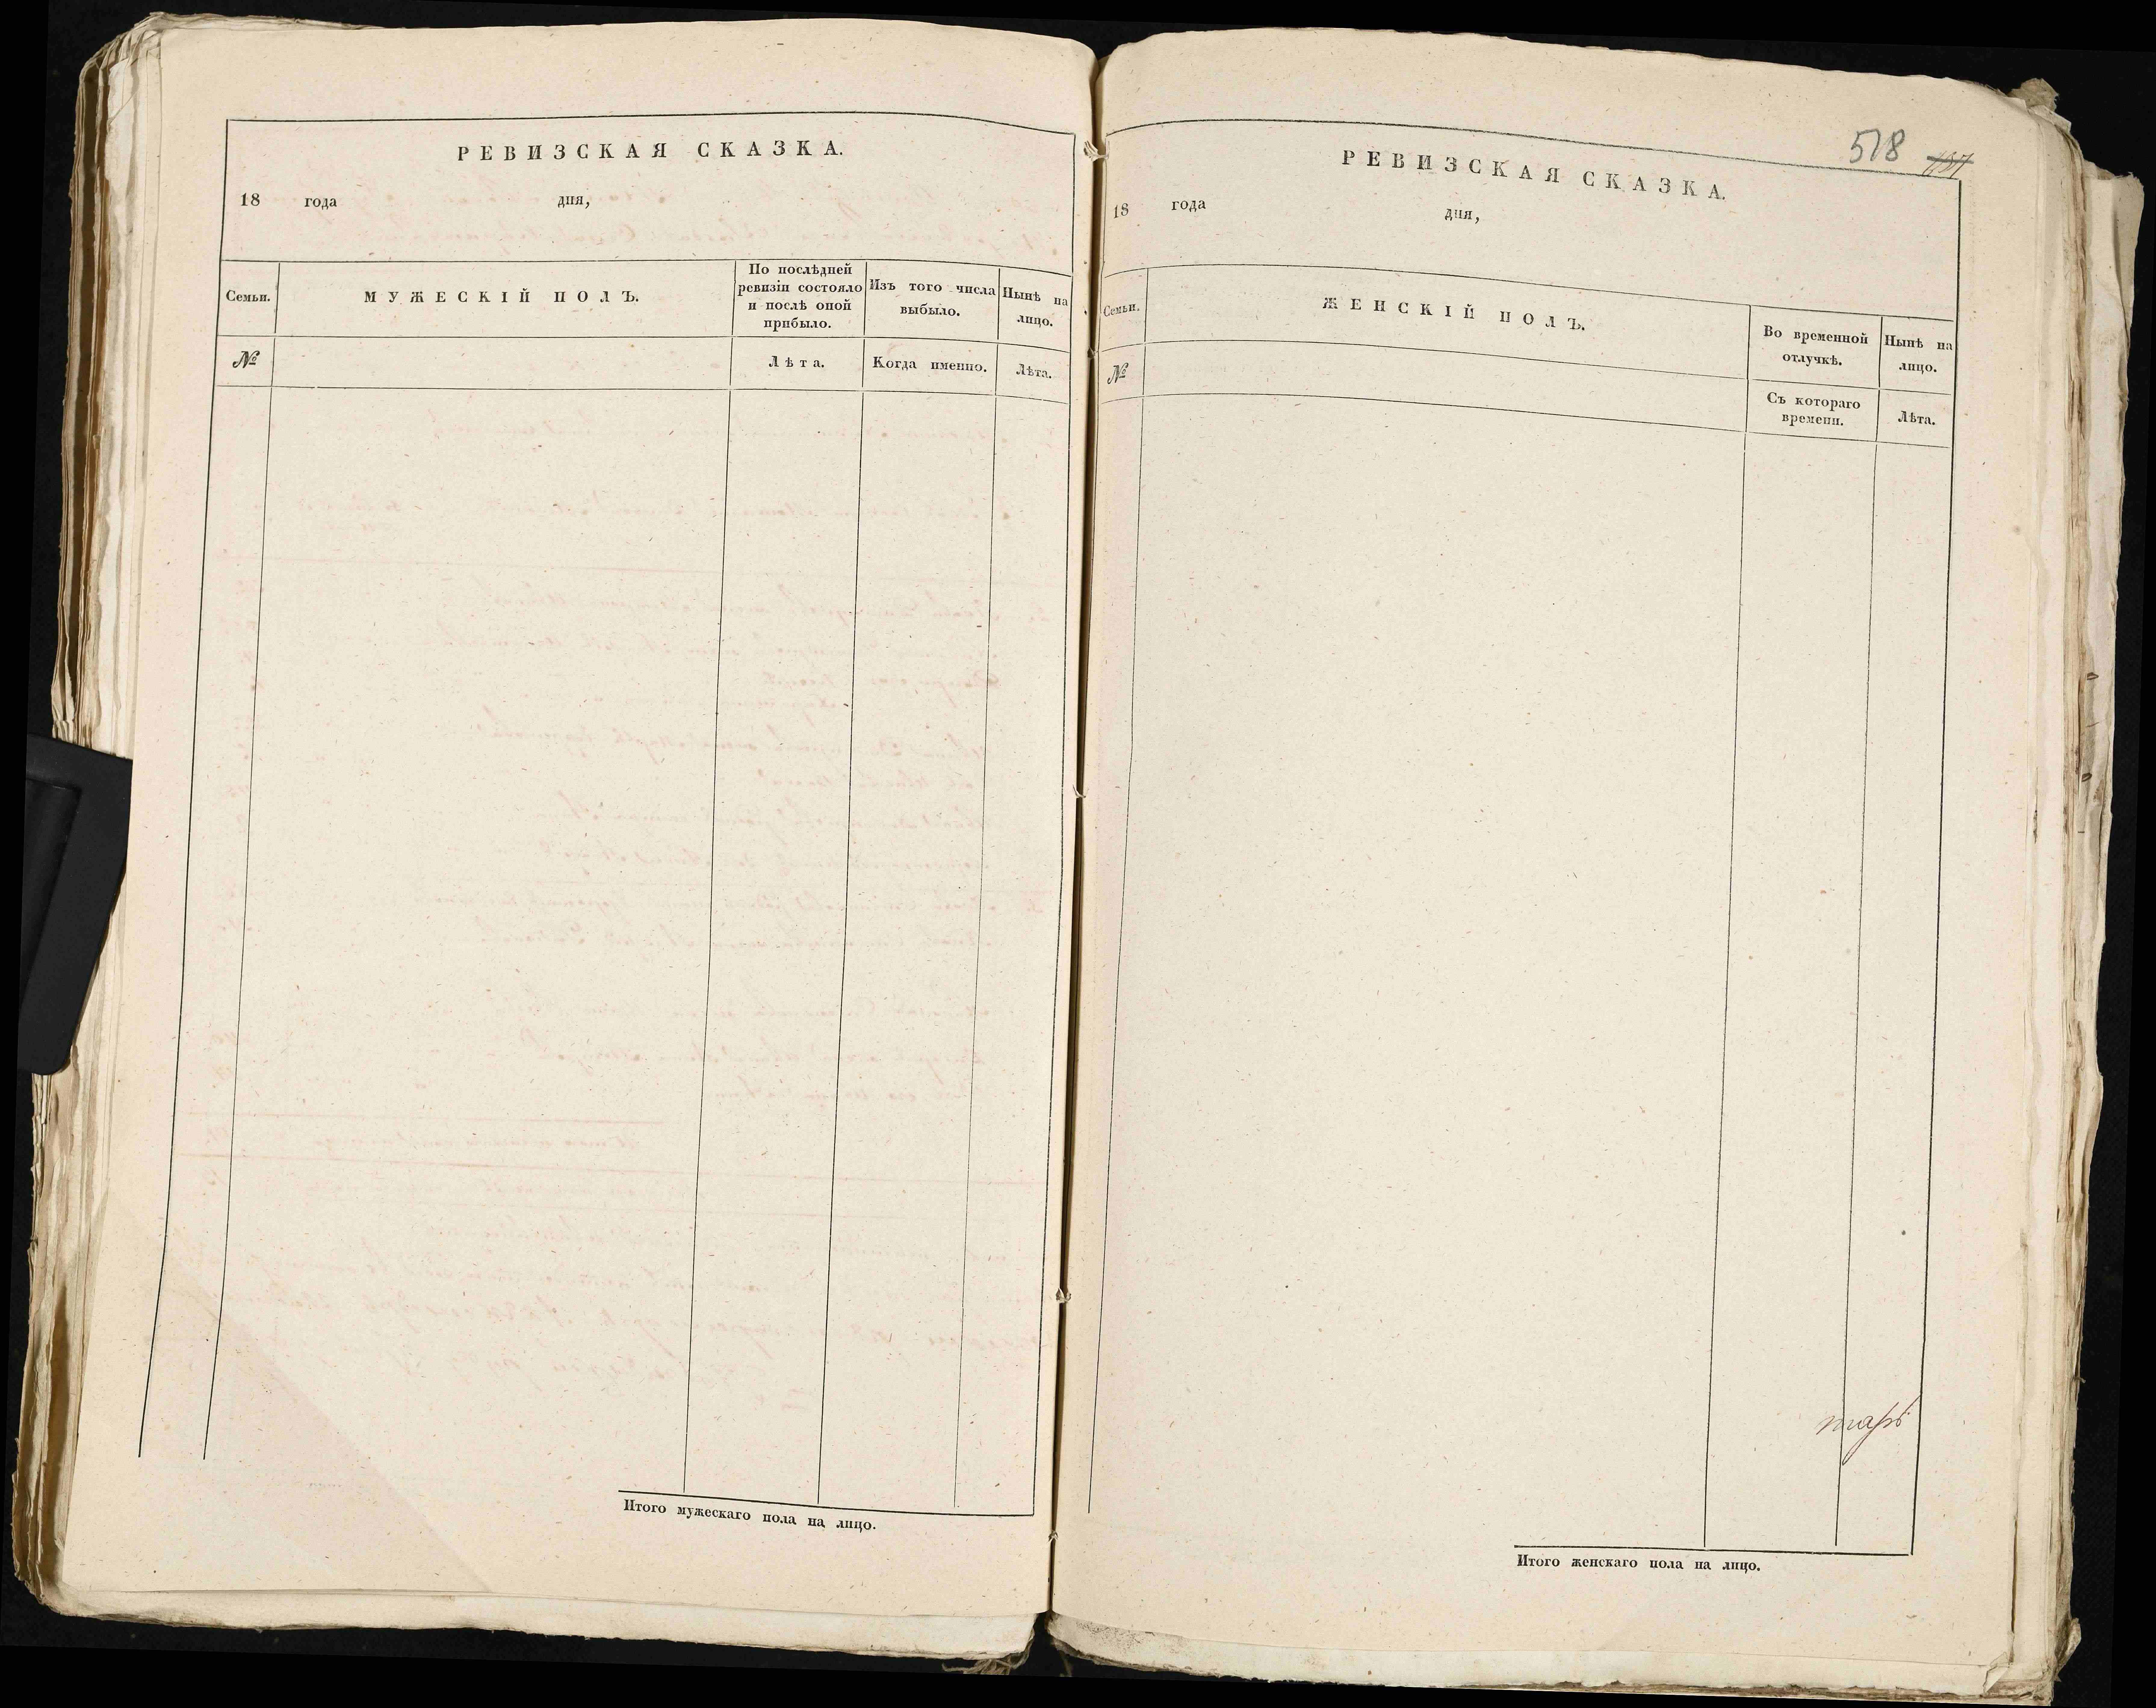 РЕВИЗСКАЯ СКАЗКА.
18 года дня,
Семьи.
МУЖЕСКІЙ ПОЛЪ.
По послѣдней
ревизіи состояло
и послѣ оной
прибыло.
Изъ того числа
выбыло.
Нынѣ на
лицо.
№
Лѣта.
Когда именно.
Лѣта.
Итого мужескаго пола на лицо.
518
РЕВИЗСКАЯ СКАЗКА.
18 года дня,
Семьи.
ЖЕНСКІЙ ПОЛЪ.
Во временной
отлучкѣ.
Нынѣ на
лицо.
№
Съ котораго
времени.
Лѣта.
тарь
Итого женскаго пола на лицо.